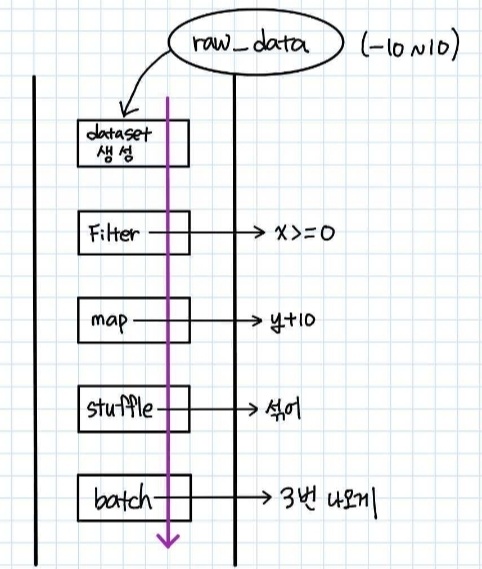 raw_data (-10~10)
dataset
생성
Filter → x>=0
map → y+10
stuffle → 섞어
batch → 3번 나오게